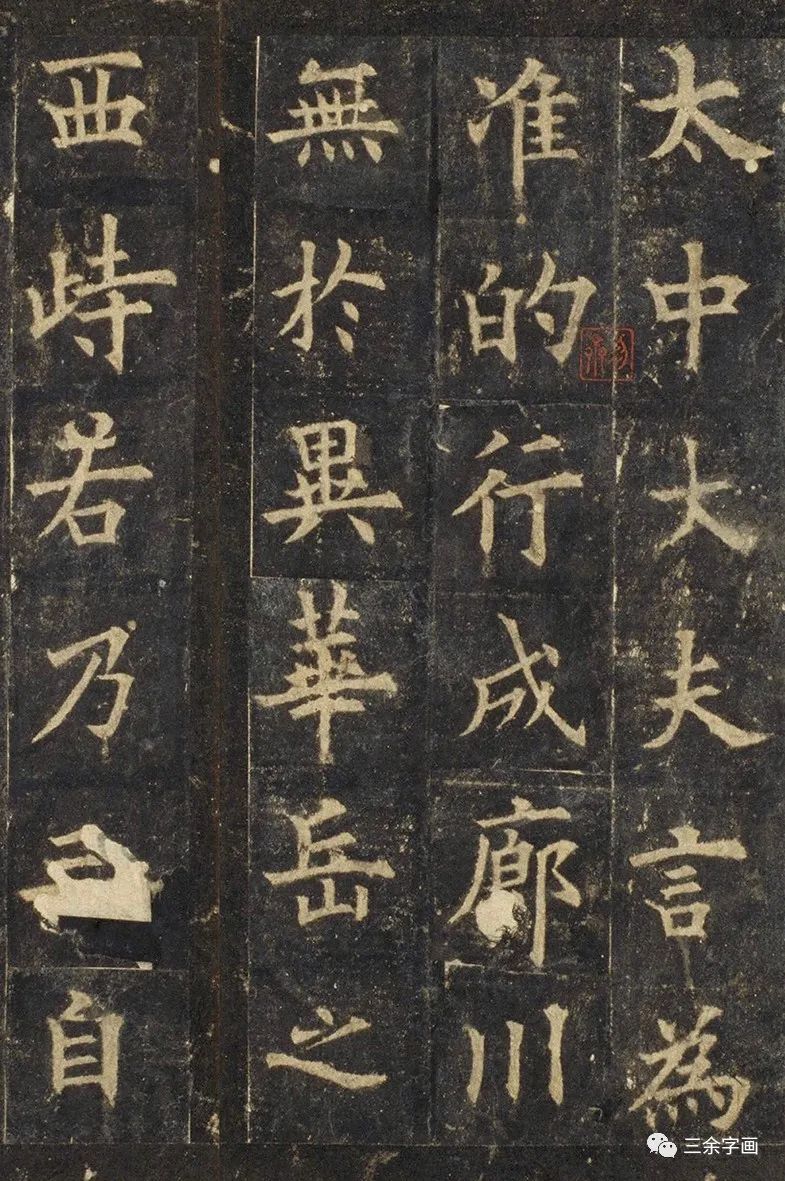 太中大夫言為
准的行成廊川
無於異華岳之
西峙若乃自
三余字画